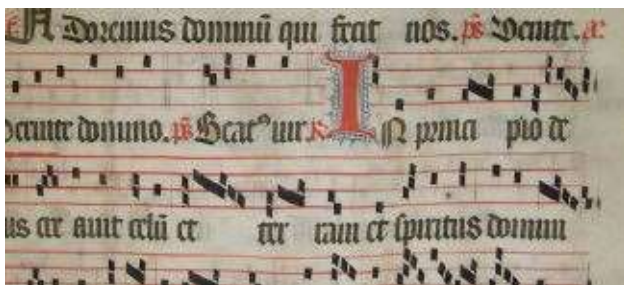 ADoremus dominū qui fecit nos. ps Venite. 
eruite domino. ps Beatꝰ uir. IN princi pio de
us cre auit celū et ter ram et spiritus domini